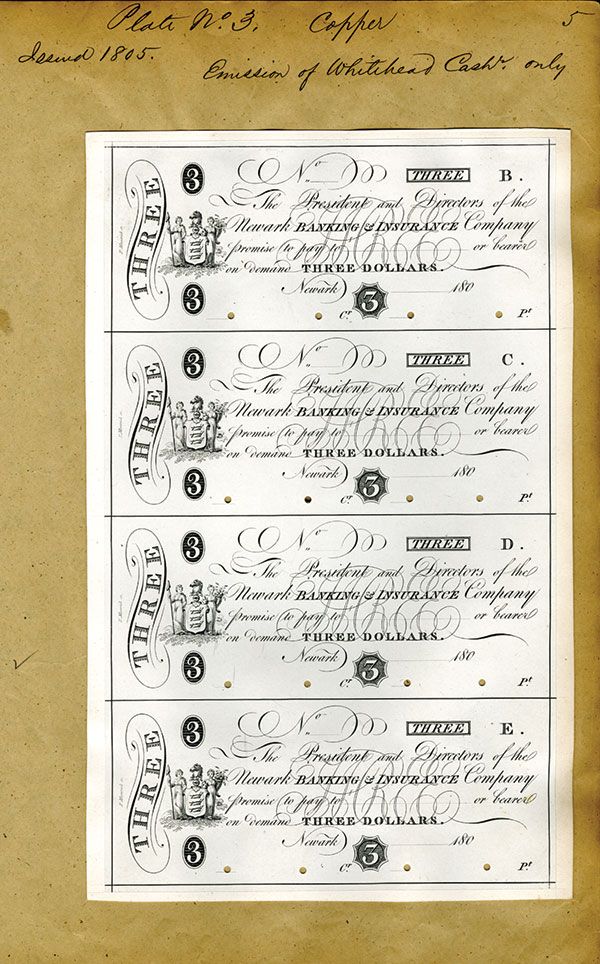 Plate No. 3. Copper 5
Issued 1805.
Emission of Whitehead Cashr. only
THREE
3 No THREE B.
The President and Directors of the
Newark BANKING & INSURANCE Company
promise to pay to THREE or bearer
on demand THREE DOLLARS.
Newark 180
3 Cr. 3 Pt
THREE
3 No THREE C.
The President and Directors of the
Newark BANKING & INSURANCE Company
promise to pay to THREE or bearer
on demand THREE DOLLARS.
Newark 180
3 Cr. 3 Pt
THREE
3 No THREE D.
The President and Directors of the
Newark BANKING & INSURANCE Company
promise to pay to THREE or bearer
on demand THREE DOLLARS.
Newark 180
3 Cr. 3 Pt
THREE
3 No THREE E.
The President and Directors of the
Newark BANKING & INSURANCE Company
promise to pay to THREE or bearer
on demand THREE DOLLARS.
Newark 180
3 Cr. 3 Pt